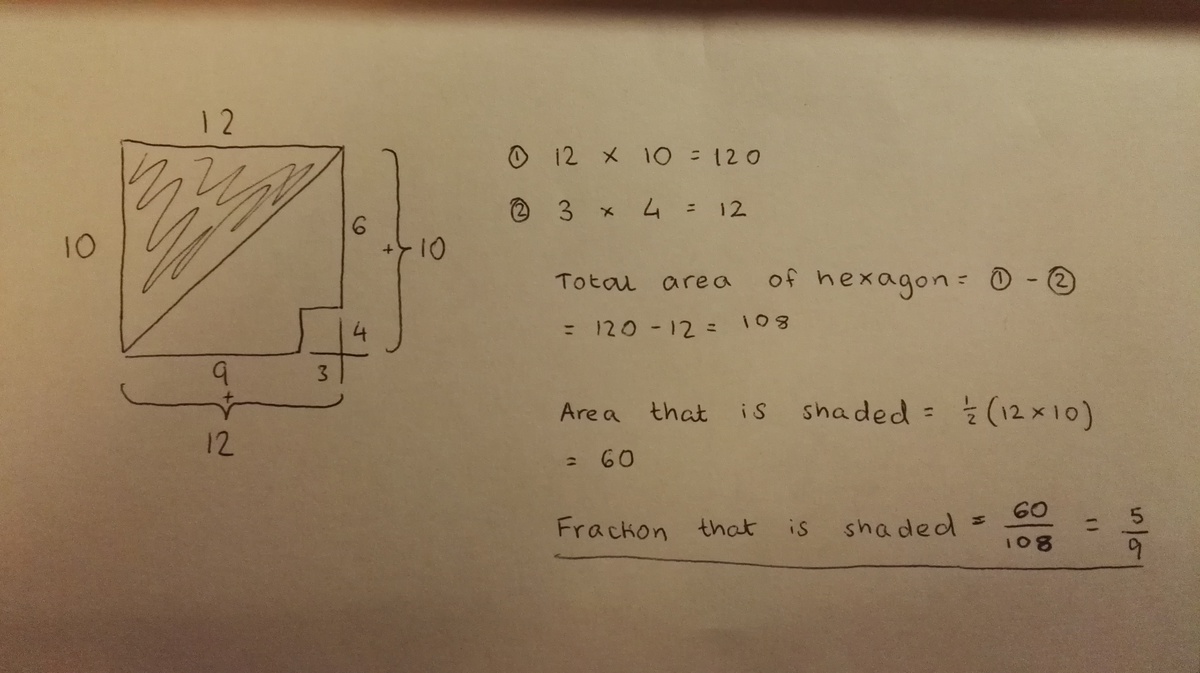 12
10
6
+ 10
4
9
3
+
12
① 12 × 10 = 120
② 3 × 4 = 12
Total area of hexagon = ① - ②
= 120 - 12 = 108
Area that is shaded = ½ (12 × 10)
= 60
Fraction that is shaded = 60/108 = 5/9